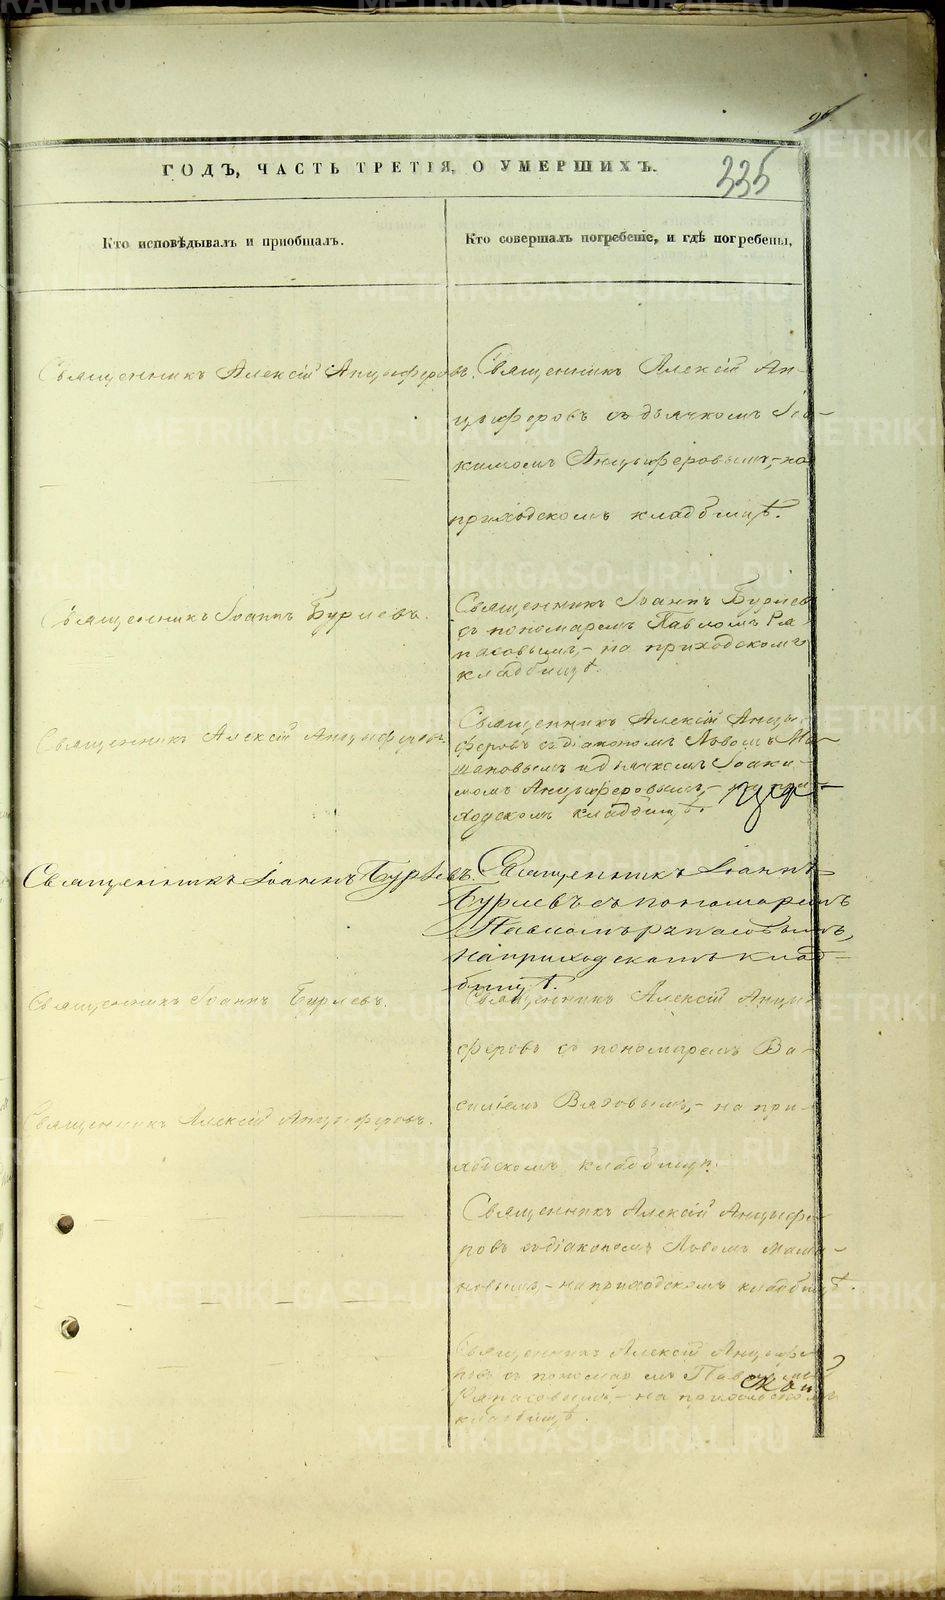 ГОДЪ, ЧАСТЬ ТРЕТІЯ, О УМЕРШИХЪ.
335
Кто исповѣдывалъ и пріобщалъ.
Кто совершалъ погребеніе, и гдѣ погребены.
Священникъ Алексій Анцыферовъ.
Священникъ Алексій Ан-
цыферовъ съ дьячкомъ Іоа-
кимомъ Анцыферовымъ,- на
приходскомъ кладбищѣ.
Священникъ Іоаннъ Бурлевъ.
Священникъ Іоаннъ Бурлевъ
съ пономаремъ Павломъ Ря
пасовымъ,- на приходскомъ
кладбищѣ.
Священникъ Алексій Анцыферовъ.
Священникъ Алексій Анцы-
феровъ съ діакономъ Львомъ Ма-
мановымъ и дьячкомъ Іоаки-
момъ Анцыферовымъ,- на при-
ходскомъ кладбищѣ.
Священникъ Іоаннъ Бурлевъ.
Священникъ Іоаннъ
Бурлевъ съ пономаремъ
Павломъ Ряпасовымъ,
на приходскомъ клад-
бищѣ.
Священникъ Іоаннъ Бурлевъ.
Священникъ Алексій Анцы-
феровъ съ пономаремъ Ва-
силіемъ Вяловымъ,- на при-
ходскомъ кладбищѣ.
Священникъ Алексій Анцыферовъ.
Священникъ Алексій Анцыфе-
ровъ съ діакономъ Львомъ Мама-
новымъ,- на приходскомъ кладбищѣ.
Священникъ Алексій Анцыфе-
ровъ съ пономаремъ Павломъ
Ряпасовымъ,- на приходскомъ
кладбищѣ.
METRIKI.GASO-URAL.RU